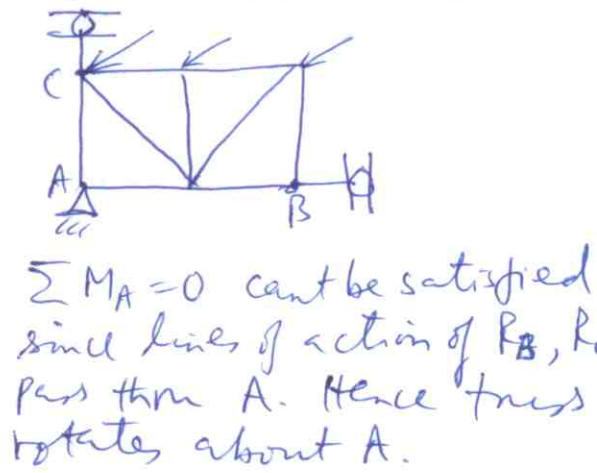 C
A
B
ΣM_A = 0 cant be satisfied
since lines of action of R_B, R
pass thru A. Hence truss
rotates about A.